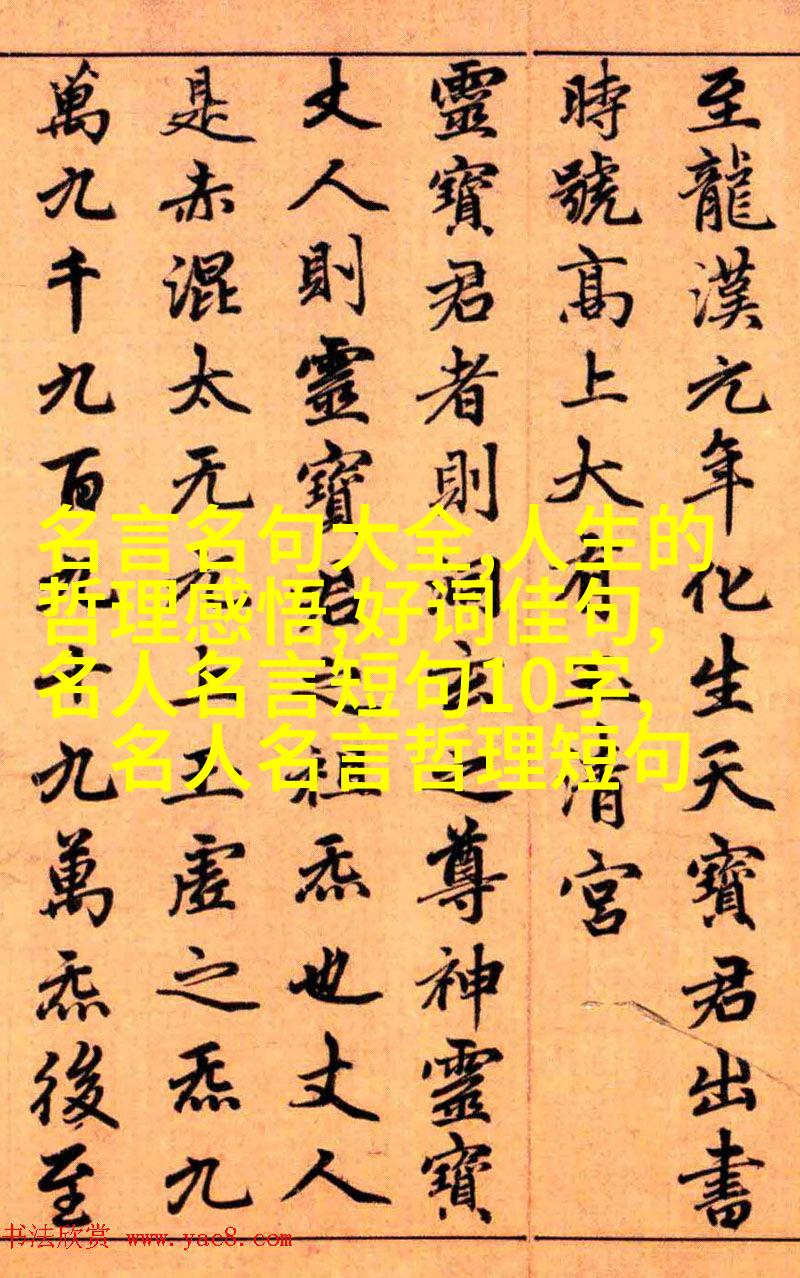 至龍漢元年化生天寶君出書
時號高上大有玉清宮
靈寶君者則洞玄之尊神靈寶
丈人則靈寶君之祖炁也丈人
是赤混太无元上玉虛之炁九
萬九千九百九十九萬炁後至
名言名句大全,人生的
哲理感悟,好词佳句,
名人名言短句10字,
名人名言哲理短句
书法欣赏 www.yac8.com